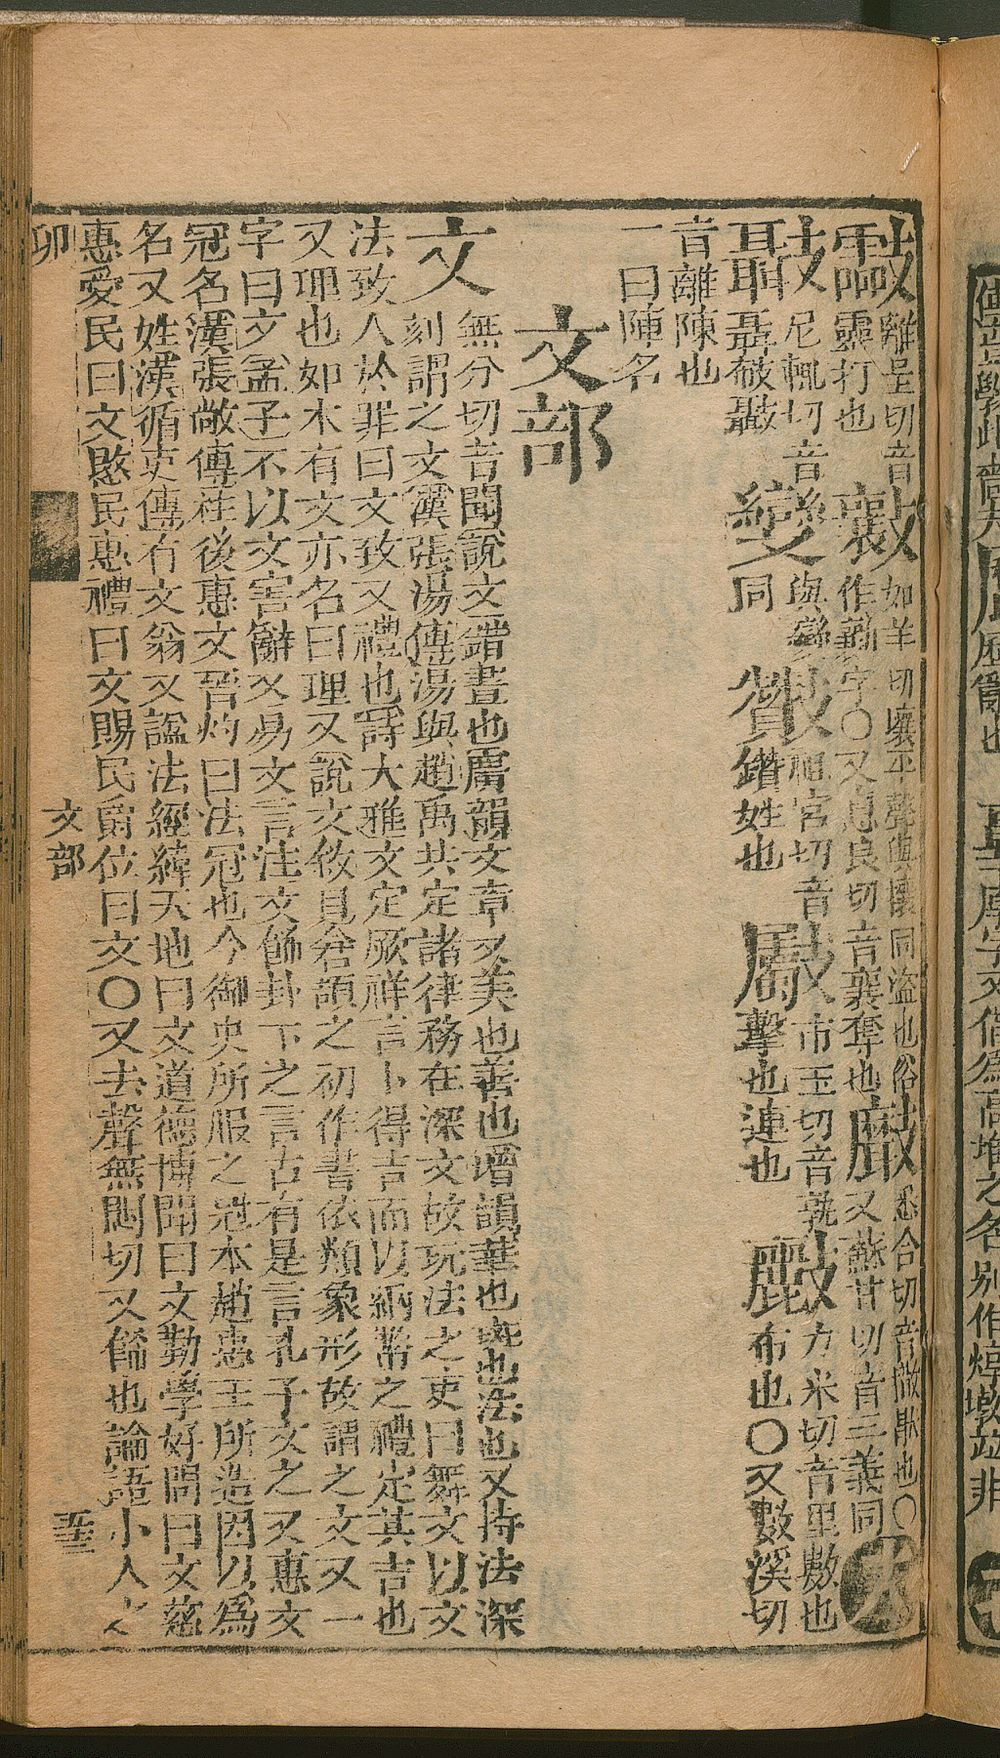 離呈切音
靈打也
如羊切壤平聲與懹同盜也俗
作勷字〇又息良切音襄奪也
悉合切音儑歃也〇
又蘇甘切音三義同
尼輒切音
聶敲
與變
同
祖官切音
鑽姓也
市玉切音孰
擊也連也
力米切音里數也
布也〇又數溪切
音離陳也
一曰陣名
文部
文
無分切音聞說文錯畫也廣韻文章又美也善也增韻華也斑也法也又持法深
刻謂之文漢張湯傳湯與趙禹共定諸律務在深文故玩法之吏曰舞文以文
法致人於罪曰文致又禮也詩大雅文定厥祥言卜得吉而以納幣之禮定其吉也
又理也如木有文亦名曰理又說文敘見倉頡之初作書依類象形故謂之文又一
字曰文孟子不以文害辭又易文言注文飾卦下之言古有是言孔子文之又惠文
冠名漢張敞傳注後惠文晉灼曰法冠也今御史所服之冠本趙惠王所造因以爲
名又姓漢循吏傳有文翁又諡法經緯天地曰文道德博聞曰文勤學好問曰文慈
惠愛民曰文愍民惠禮曰文賜民爵位曰文〇又去聲無悶切又餙也論語小人之
卯
文部
五十三